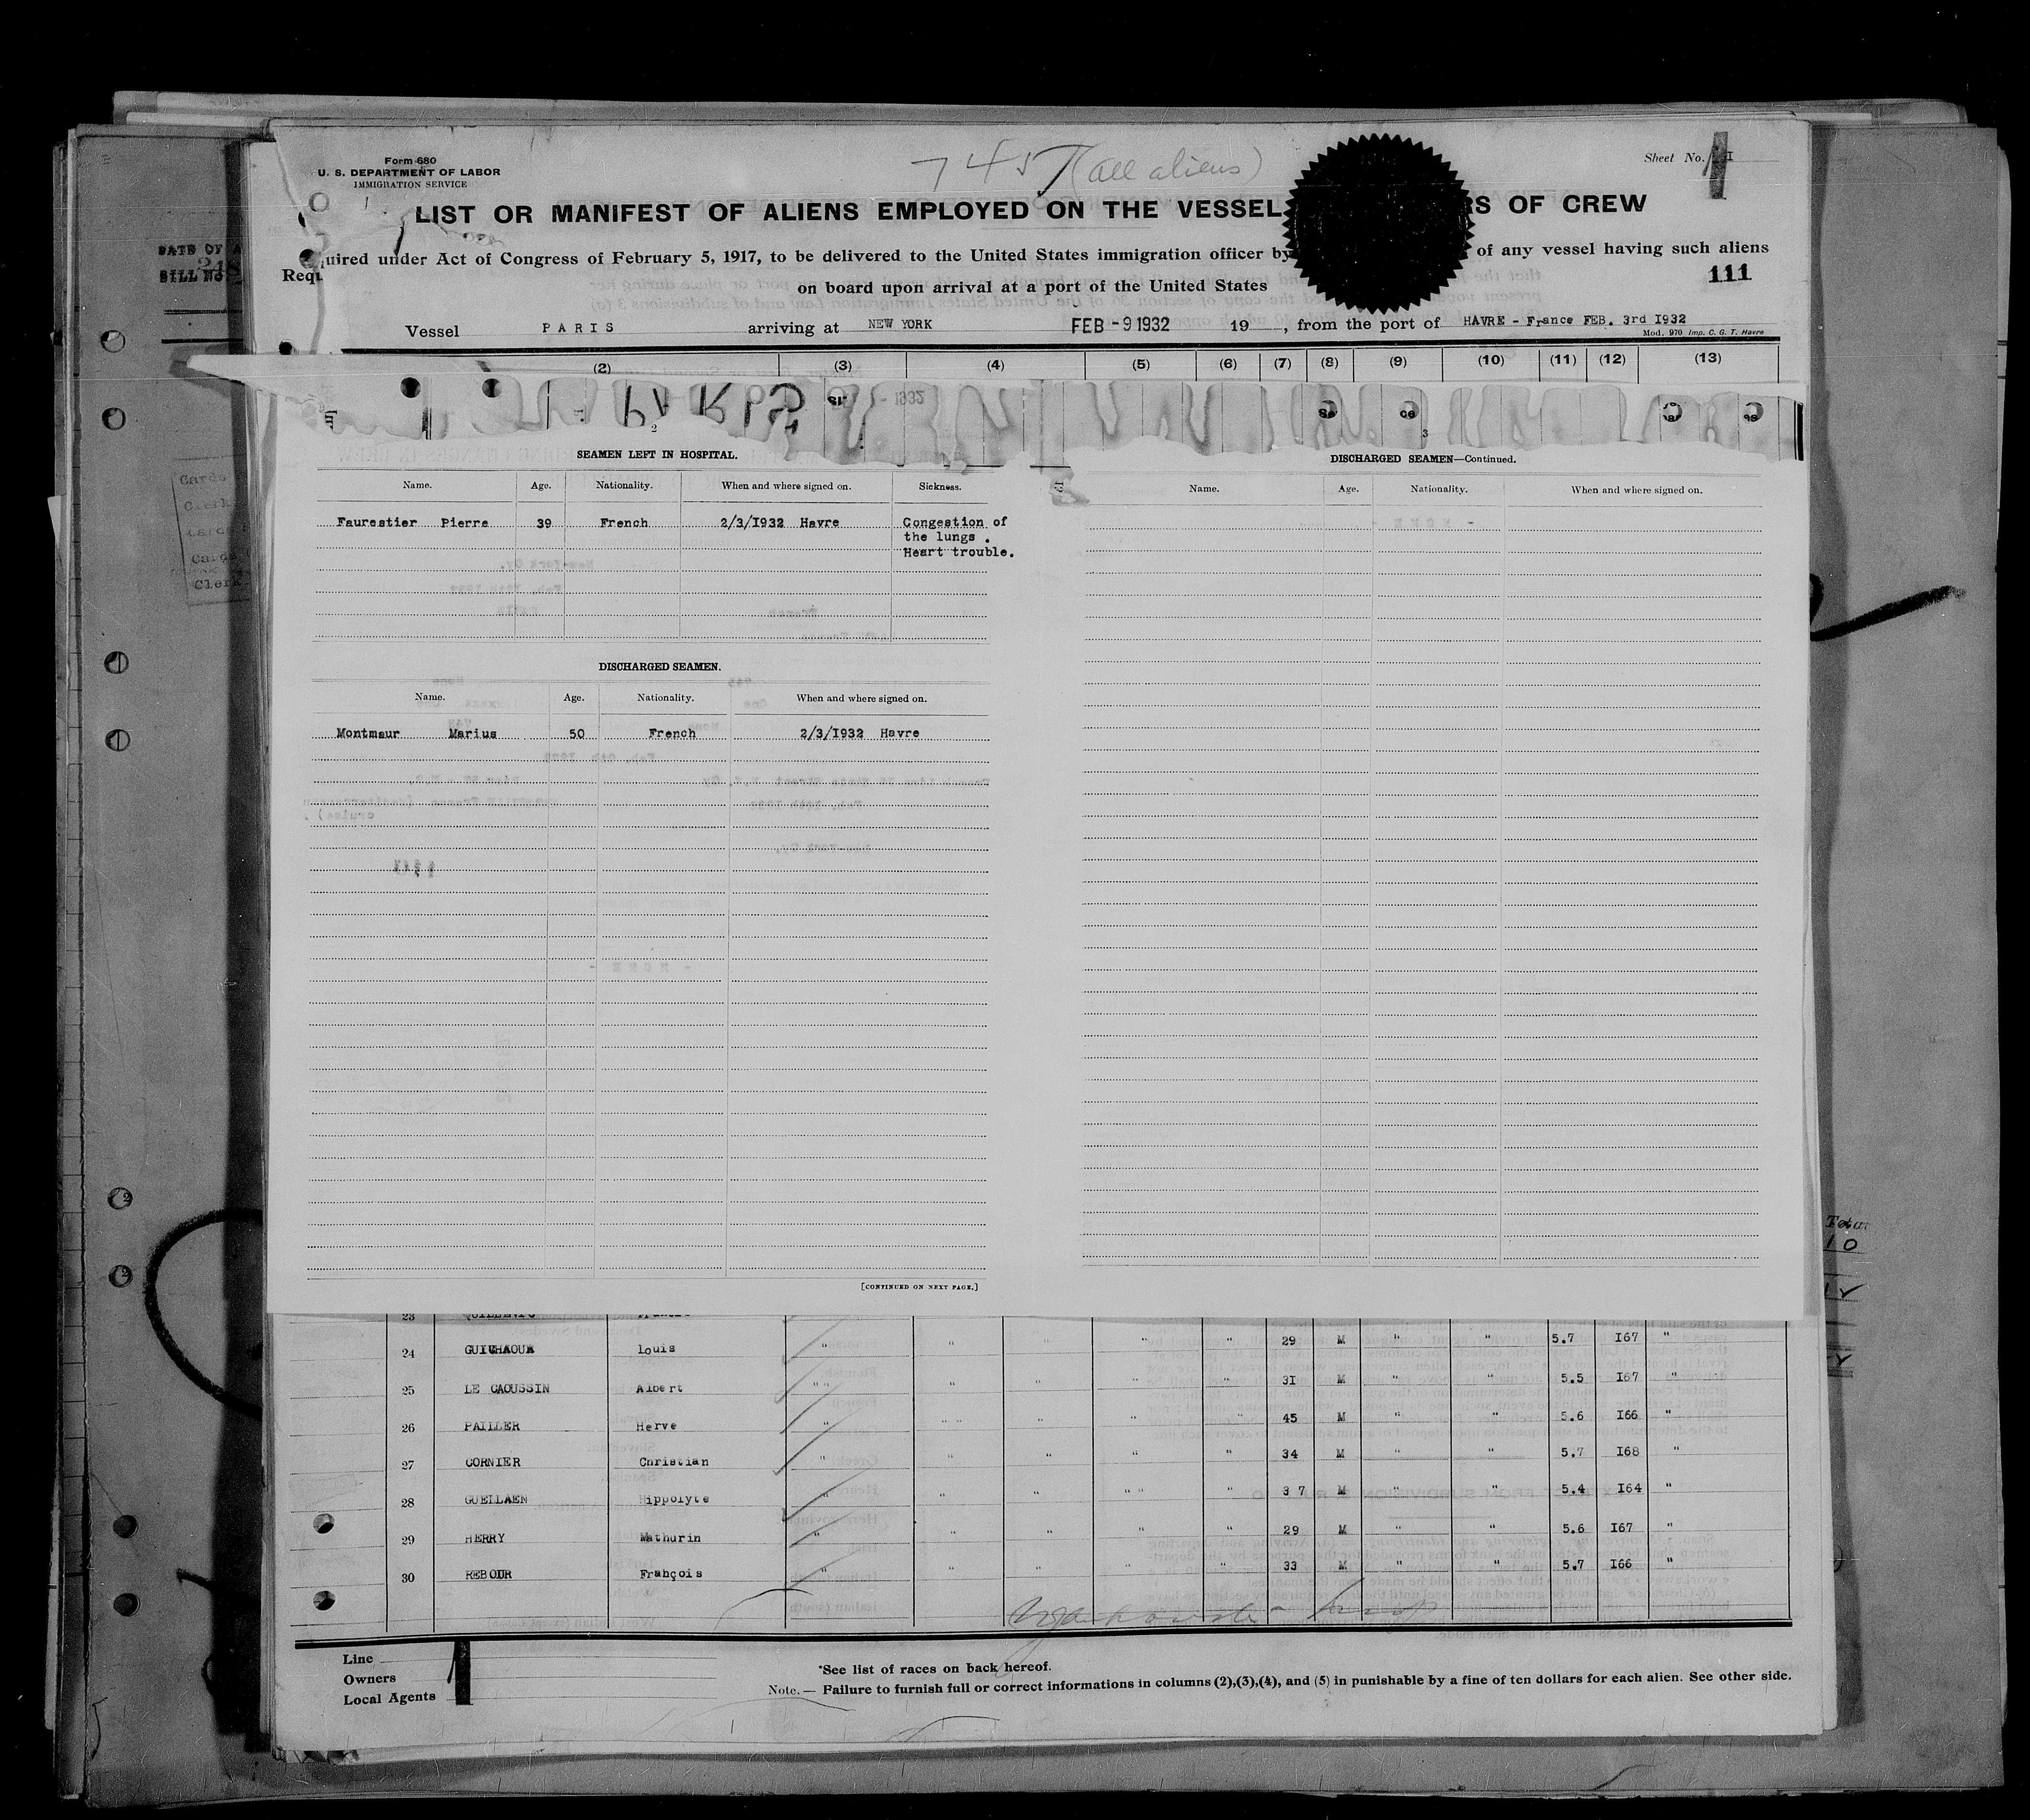 Form 680
U. S. DEPARTMENT OF LABOR
IMMIGRATION SERVICE
745 (all aliens)
Sheet No. I
LIST OR MANIFEST OF ALIENS EMPLOYED ON THE VESSEL RS OF CREW
Required under Act of Congress of February 5, 1917, to be delivered to the United States immigration officer by of any vessel having such aliens
on board upon arrival at a port of the United States
111
Vessel PARIS arriving at NEW YORK FEB -9 1932 19 , from the port of HAVRE - France FEB. 3rd I932
Mod. 970 Imp. C. G. T. Havre
(2) (3) (4) (5) (6) (7) (8) (9) (10) (11) (12) (13)
2
3
SEAMEN LEFT IN HOSPITAL.
Name. Age. Nationality. When and where signed on. Sickness.
Faurestier Pierre 39 French 2/3/I932 Havre Congestion of
the lungs .
Heart trouble.
DISCHARGED SEAMEN.
Name. Age. Nationality. When and where signed on.
Montmaur Marius 50 French 2/3/I932 Havre
[CONTINUED ON NEXT PAGE.]
DISCHARGED SEAMEN—Continued.
Name. Age. Nationality. When and where signed on.
23
24 GUICHAOUA Louis " " " " " 29 M " " 5.7 I67 "
25 LE CAOUSSIN Albert " " " " " " 3I M " " 5.5 I67 "
26 PAILLER Herve " " " " " " 45 M " " 5.6 I66 "
27 CORNIER Christian " " " " " 34 M " " 5.7 I68 "
28 GUELLAEN Hippolyte " " " " " " 3 7 M " " 5.4 I64 "
29 HERRY Mathurin " " " " " 29 M " " 5.6 I67 "
30 REBOUR François " " " " " 33 M " " 5.7 I66 "
Line
Owners
Local Agents
*See list of races on back hereof.
Note.— Failure to furnish full or correct informations in columns (2),(3),(4), and (5) in punishable by a fine of ten dollars for each alien. See other side.
DATE OF A
BILL NO.
Cards
Clerk
Cards
Cards
Clerk
Total
10